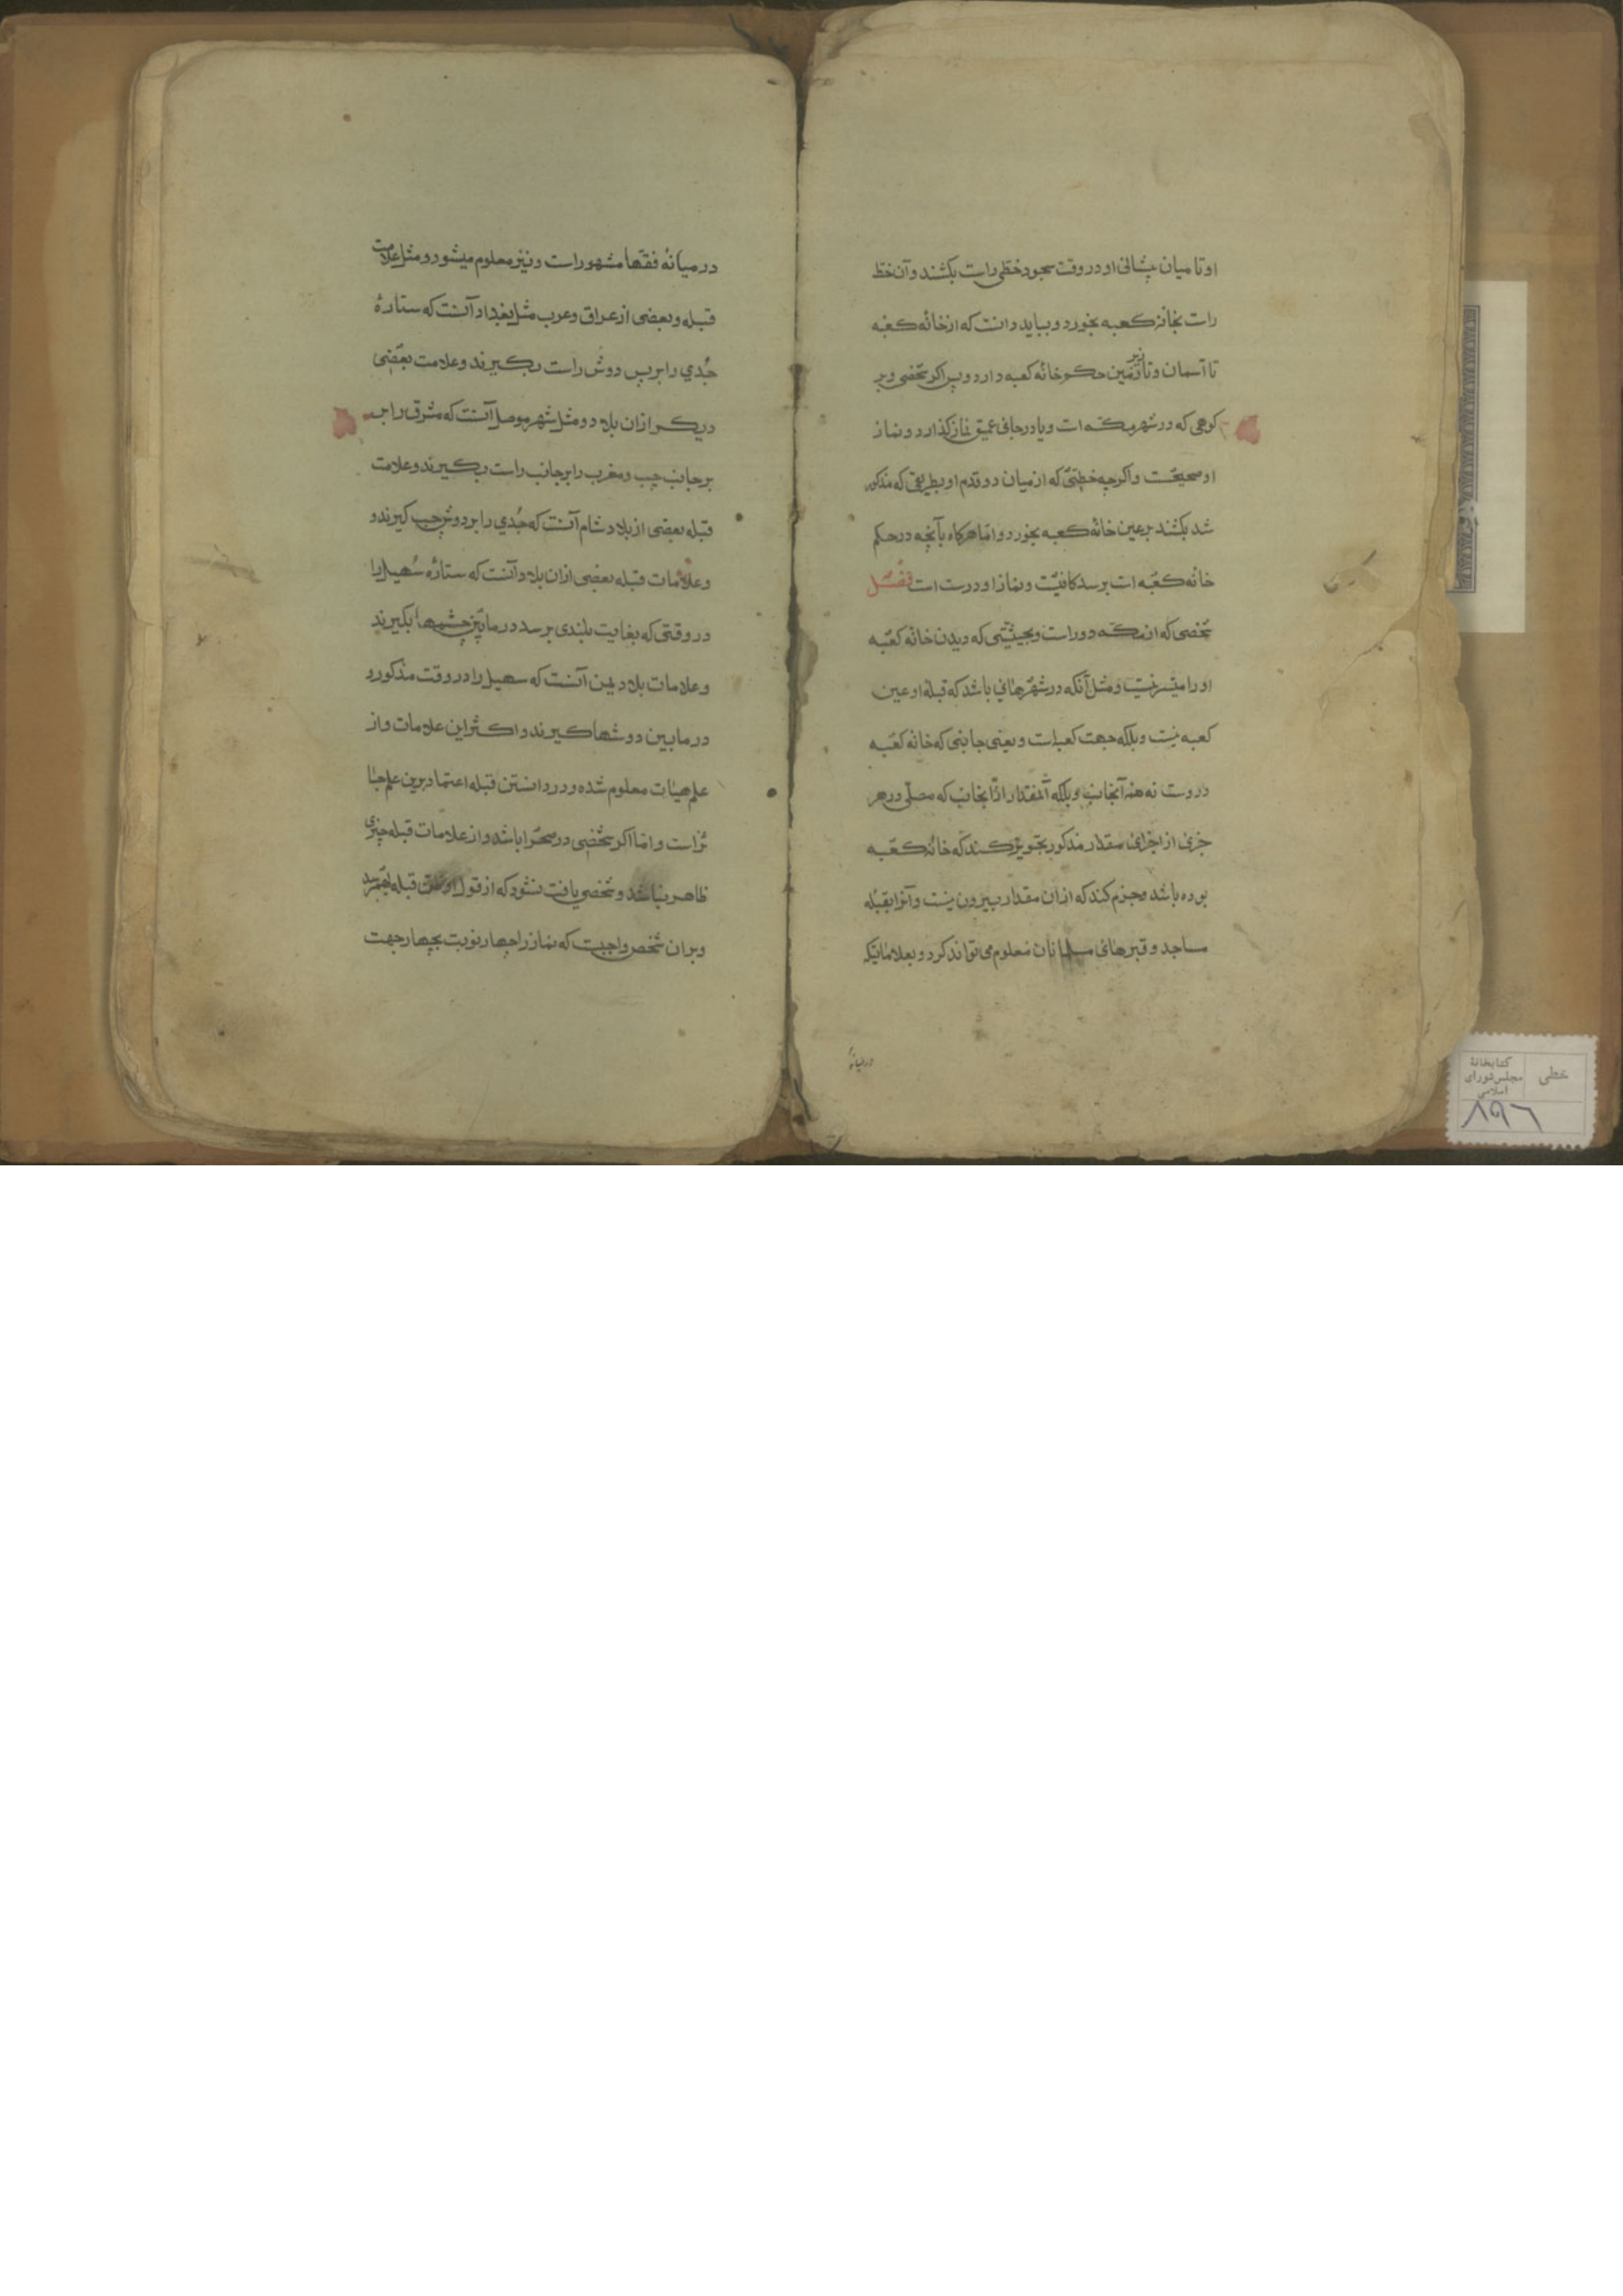 او تا میان پیشانی او در وقت سجود خطی راست بکشند و آن خط
راست بخانه کعبه بخورد و بباید دانست که از خانه کعبه
تا آسمان و تا زیر زمین حکم خانه کعبه دارد و پس اگر شخصی در
کوهی که در شهر مکه است و یا در جائی عمیق نماز گذارد و نماز
او صحیحست و اگرچه خطی که از میان دو قدم او بطریقی که مذکور
شد بکشند بر عین خانه کعبه نخورد و اما هرگاه بآنچه در حکم
خانه کعبه است برسد کافیست و نماز او درست است فصل
شخصی که از مکه دور است و بحیثیتی که دیدن خانه کعبه
او را میسر نیست و مثل آنکه در شهرهائی باشد که قبله او عین
کعبه نیست و بلکه جهت کعبه است و یعنی جانبی که خانه کعبه
دروست نه همه آنجانب و بلکه آنمقدار از آنجانب که مصلی در هر
جزئ از اجزای مقدار مذکور تجویز کند که خانه کعبه
بوده باشد و جزم کند که از ان مقدار بیرون نیست و آنرا بقبله
مساجد و قبرهائ مسلمانان معلوم می تواند کرد و بعلاماتیکه
در میانه
در میانه فقها مشهور است و نیز معلوم میشود و مثل علامت
قبله و بعضی از عراق و عرب مثل بغداد آنست که ستاره
جدی را بر پس دوش راست بگیرند و علامت بعضی
دیگر از ان بلاد و مثل شهر موصل آنست که مشرق را بر
بر جانب چپ و مغرب را بر جانب راست بگیرند و علامت
قبله بعضی از بلاد شام آنست که جدی را بر دوش چپ گیرند و
و علامات قبله بعضی از ان بلاد آنست که ستاره سهیل را
در وقتی که بغایت بلندی برسد در مابین چشمها بگیرند
و علامات بلاد یمن آنست که سهیل را در وقت مذکور و
در مابین دوشها گیرند و اکثر این علامات و از
علم هیات معلوم شده و در دانستن قبله اعتماد برین علم جا
ئز است و اما اگر شخصی در صحرا باشد و از علامات قبله چیزی
ظاهر نباشد و شخصی یافت نشود که از قول او قبله
و بر ان شخص واجبست که نماز را چهار نوبت بچهار جهت
خطی
کتابخانهٔ
مجلس شورای
اسلامی
۸۹۶